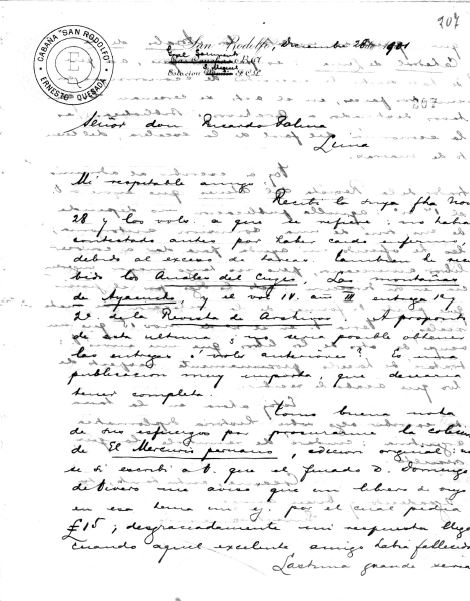 207
CABAÑA "SAN RODOLFO"
ERNESTO QUESADA
San Rodolfo, Diciembre 28 1901
Estación
Señor don Ricardo Palma
Lima
Mi respetable amigo
Recibí la suya fha Nov
28 y los vols. a que se refiere: no había
contestado antes por haber caído enfermo
debido al exceso de tareas. También he reci
bido los Anales del Cuzco, Las montañas
de Ayacucho, y el vol IV. año III entrega 1ª y
2ª de la Revista de Archivos. A propósito
de esta última ¿no sería posible obtener
las entregas ó vols anteriores? Es una
publicación muy importante que desearía
tener completa.
Tomo buena nota
de sus esfuerzos por procurarme la colección
de El Mercurio peruano, edición original: no
sé si escribí a V. que el finado D. Domingo
de Vivero me avisó que un librero de
en esa tenía un ej. por el cual pedía
£15; desgraciadamente mi respuesta llegó
cuando aquel excelente amigo había fallecido.
Lástima grande sería